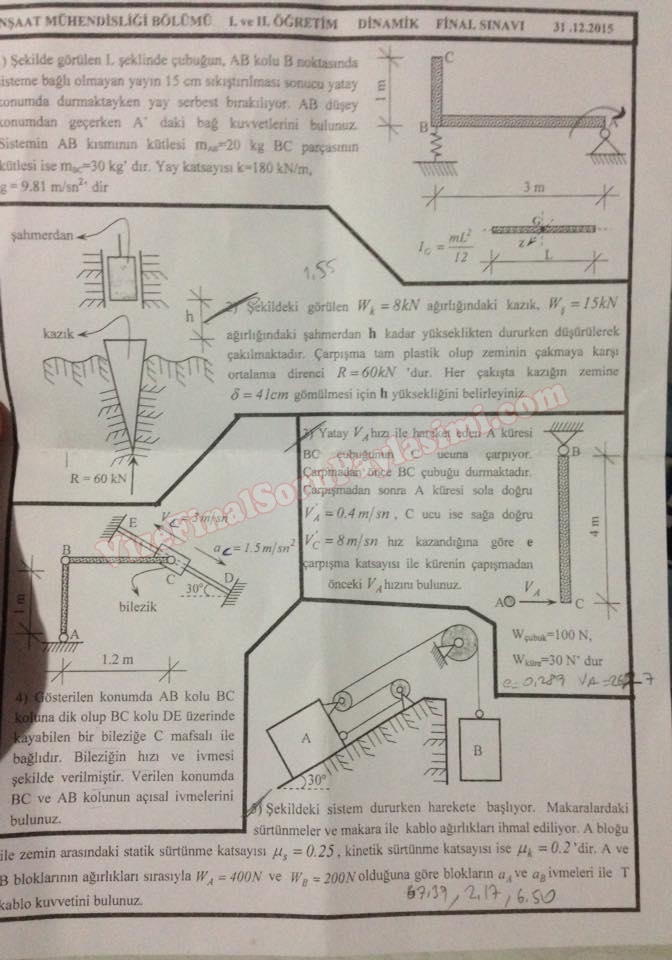 NŞAAT MÜHENDİSLİĞİ BÖLÜMÜ I. ve II. ÖĞRETİM DİNAMİK FİNAL SINAVI 31.12.2015
) Şekilde görülen L şeklinde çubuğun, AB kolu B noktasında
sisteme bağlı olmayan yayın 15 cm sıkıştırılması sonucu yatay
konumda durmaktayken yay serbest bırakılıyor. AB düşey
konumdan geçerken A' daki bağ kuvvetlerini bulunuz.
Sistemin AB kısmının kütlesi mAB=20 kg BC parçasının
kütlesi ise mBC=30 kg' dır. Yay katsayısı k=180 kN/m,
g = 9.81 m/sn²' dir
C
1 m
B
A
3 m
G
z
L
I_G = mL²/12
şahmerdan
kazık
h
R = 60 kN
1,55
2) Şekildeki görülen W_k = 8kN ağırlığındaki kazık, W_ş = 15kN
ağırlığındaki şahmerdan h kadar yükseklikten dururken düşürülerek
çakılmaktadır. Çarpışma tam plastik olup zeminin çakmaya karşı
ortalama direnci R = 60kN 'dur. Her çakışta kazığın zemine
δ = 41cm gömülmesi için h yüksekliğini belirleyiniz.
VizeFinalSoruPaylasimi.com
3) Yatay V_A hızı ile hareket eden A küresi
BC çubuğunun C ucuna çarpıyor.
Çarpmadan önce BC çubuğu durmaktadır.
Çarpışmadan sonra A küresi sola doğru
V'_A = 0.4 m/sn , C ucu ise sağa doğru
V'_C = 8 m/sn hız kazandığına göre e
çarpışma katsayısı ile kürenin çapışmadan
önceki V_A hızını bulunuz.
B
4 m
A
V_A
C
Wçubuk=100 N,
Wküre=30 N' dur
e=0,289
E
V_C = 3 m/sn
a_C = 1.5 m/sn²
B
C
D
30°
bilezik
1 m
A
1.2 m
4) Gösterilen konumda AB kolu BC
koluna dik olup BC kolu DE üzerinde
kayabilen bir bileziğe C mafsalı ile
bağlıdır. Bileziğin hızı ve ivmesi
şekilde verilmiştir. Verilen konumda
BC ve AB kolunun açısal ivmelerini
bulunuz.
A
B
30°
5) Şekildeki sistem dururken harekete başlıyor. Makaralardaki
sürtünmeler ve makara ile kablo ağırlıkları ihmal ediliyor. A bloğu
ile zemin arasındaki statik sürtünme katsayısı μ_s = 0.25 , kinetik sürtünme katsayısı ise μ_k = 0.2 'dir. A ve
B bloklarının ağırlıkları sırasıyla W_A = 400N ve W_B = 200N olduğuna göre blokların a_A ve a_B ivmeleri ile T
kablo kuvvetini bulunuz.
67,39 , 2,17 , 6.50